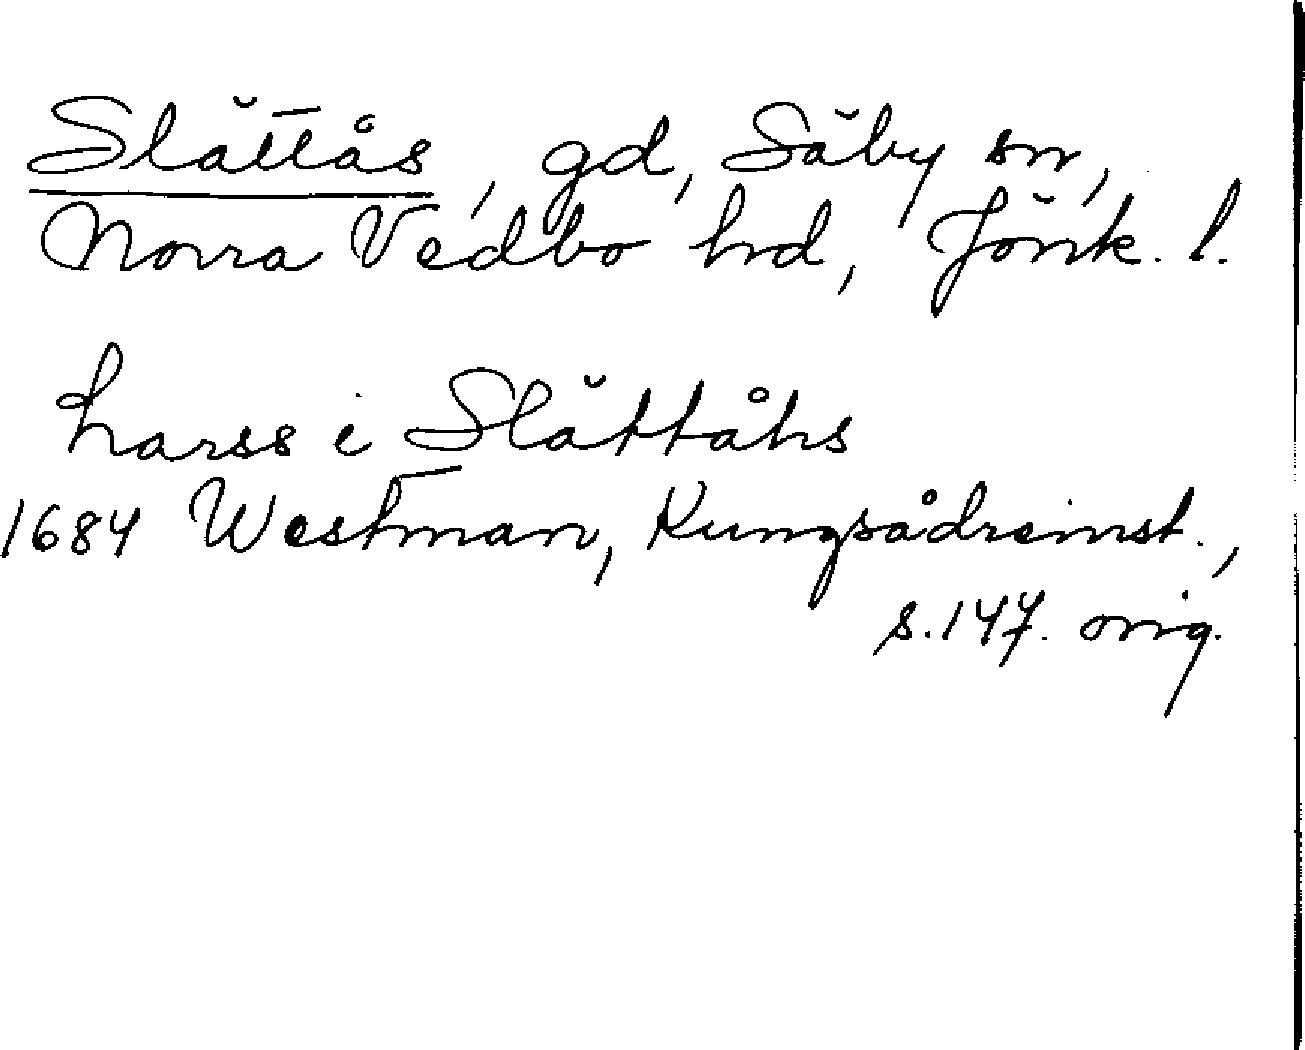 Slättås, gd, Säby sn,
Norra Vedbo hd, Jönk. l.
Larss i Slättåhs
1684 Westman, Kungsådreinst.,
s. 147. orig.